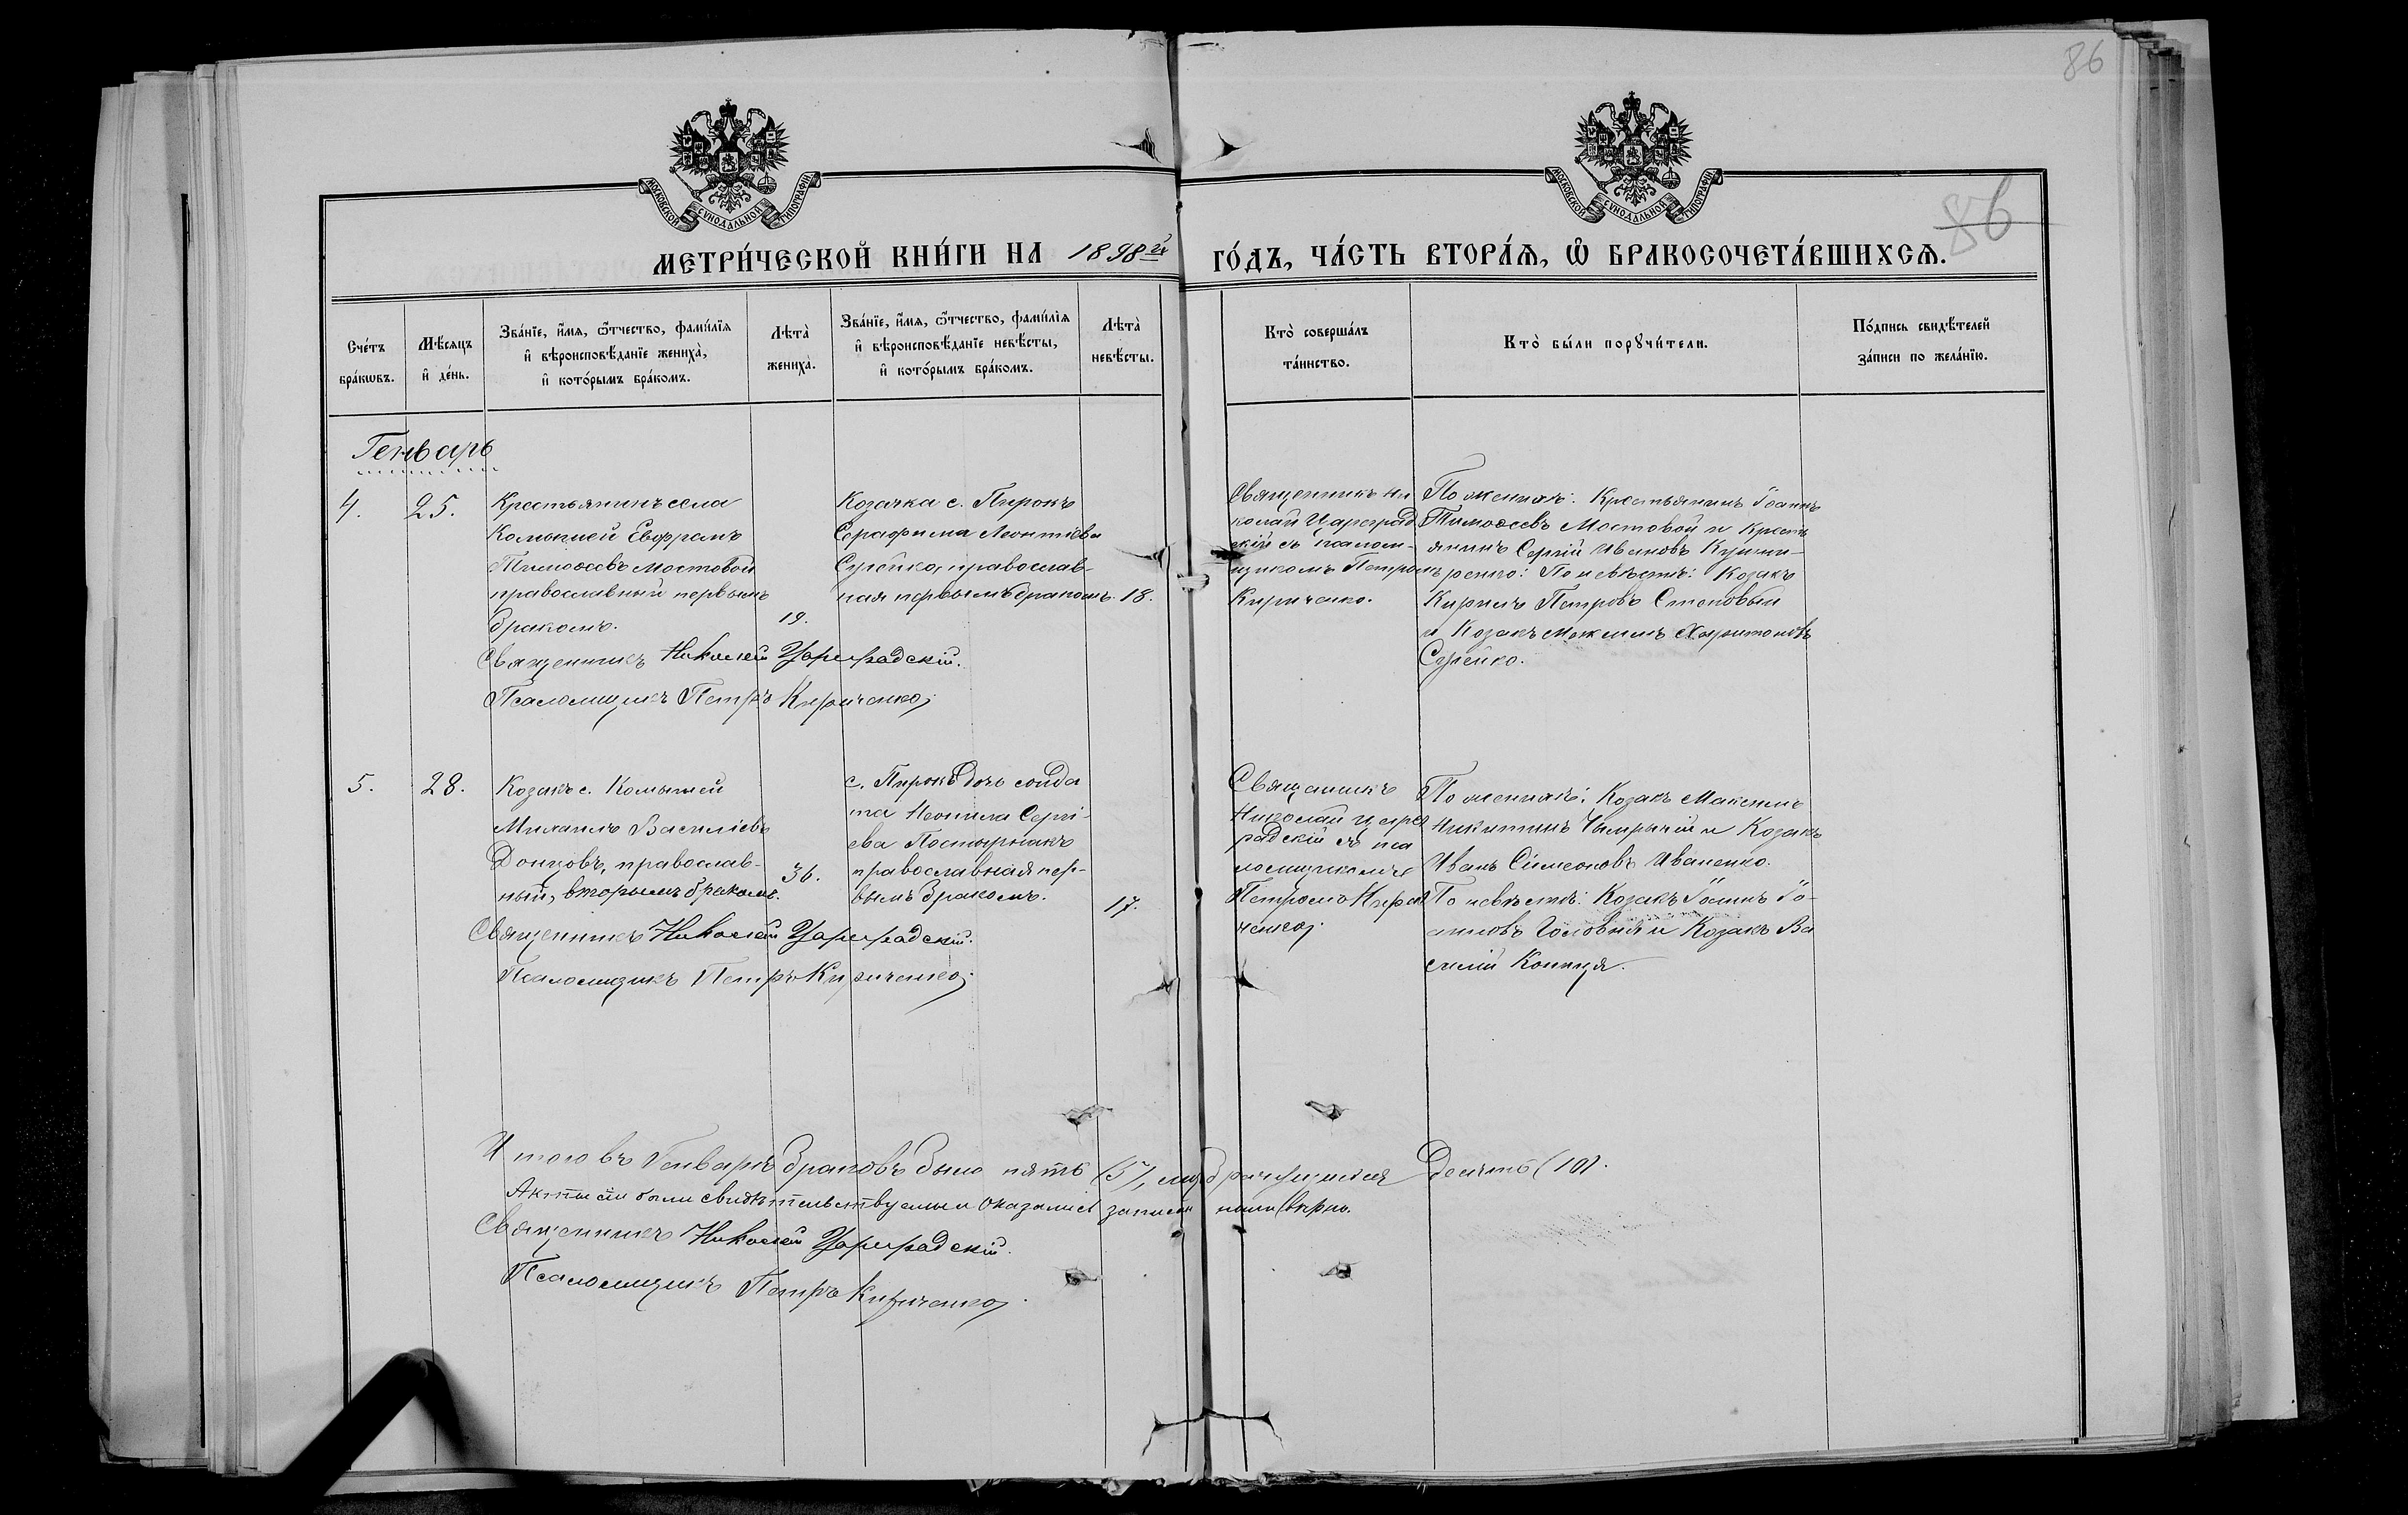 86
МОСКОВСКОЙ СѴНОДАЛЬНОЙ ТИПОГРАФІИ
МОСКОВСКОЙ СѴНОДАЛЬНОЙ ТИПОГРАФІИ
86
МЕТРИ́ЧЕСКОЙ КНИ́ГИ НА 1898й ГО́ДЪ, ЧА́СТЬ ВТОРА́Я, Ѽ БРАКОСОЧЕТА́ВШИХСЯ.
Сче́тъ
бра́кѡвъ.
Мѣ́сяцъ
и҆ де́нь.
Зва́нїе, и҆́мя, ѻ҆́тчество, фами́лїя
и҆ вѣроисповѣ́данїе жениха̀,
и҆ кото́рымъ бра́комъ.
Лѣта̀
жениха̀.
Зва́нїе, и҆́мя, ѻ҆́тчество, фами́лїя
и҆ вѣроисповѣ́данїе невѣ́сты,
и҆ кото́рымъ бра́комъ.
Лѣта̀
невѣ́сты.
Кто̀ соверша́лъ
та́инство.
Кто̀ бы́ли порꙋчи́тели.
По́дпись свидѣ́телей
за́писи по жела́нїю.
Генварь
4.
25.
Крестьянинъ села
Комышей Евфремъ
Тимоѳеевъ Мостовой
православный первымъ
бракомъ.
19.
Козачка с. Пирокъ
Серафима Леонтіева
Сулейко, православ-
ная первымъ бракомъ.
18.
Священникъ Ни
колай Цареград
скій съ псалом-
щикомъ Петромъ
Кириченко.
По женихѣ: Крестьянинъ Іоаннъ
Тимоѳеевъ Мостовой и Кресть
янинъ Сергій Ивановъ
По невѣстѣ: Козакъ
Кирилъ Петровъ Степовый
и Козакъ Максимъ Харитоновъ
Сулейко.
Священникъ Николай Цареградскій.
Псаломщикъ Петръ Кириченко
5.
28.
Козакъ с. Комышей
Михаилъ Василіевъ
Донцовъ, православ-
ный, вторымъ бракомъ.
36.
с. Пирокъ дочь солда
та Неонила Сергі-
ева
православная пер-
вымъ бракомъ.
17.
Священникъ
Николай Царег
радскій съ пса
ломщикомъ
Петромъ Кири
ченко
По женихѣ: Козакъ Максимъ
Никитинъ и Козакъ
Иванъ Симеоновъ Иваненко.
По невѣстѣ: Козакъ Іоаннъ Іо-
анновъ Головня и Козакъ Ва
силій Копица.
Священникъ Николай Цареградскій.
Псаломщикъ Петръ Кириченко
Итого въ Генварѣ браковъ было пять (5), лицъ десять (10).
Акты сіи были свидѣтельствуемы и оказались записаны вѣрно.
Священникъ Николай Цареградскій.
Псаломщикъ Петръ Кириченко